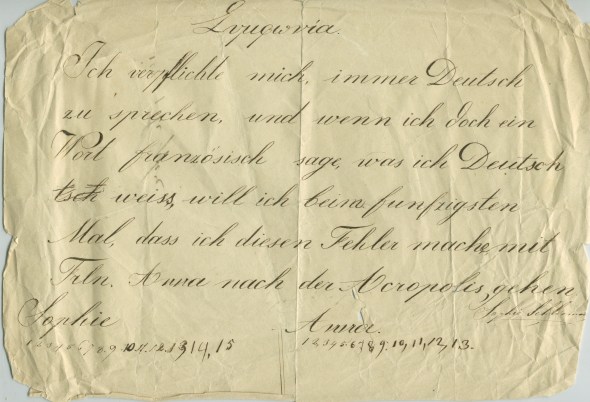 Συμφωνία.
Ich verpflichte mich, immer Deutsch
zu sprechen, und wenn ich doch ein
Wort französisch sage, was ich Deutsch
tsch weiss, will ich beim funfzigsten
Mal, dass ich diesen Fehler mache, mit
Frln. Anna nach der Acropolis, gehen
Sophie Schliemann
Sophie Anna.
1 2 3 4 5 6 7 8 9. 10. 11. 12. 13, 14, 15 1 2 3 4 5 6 7 8, 9. 10, 11, 12, 13.